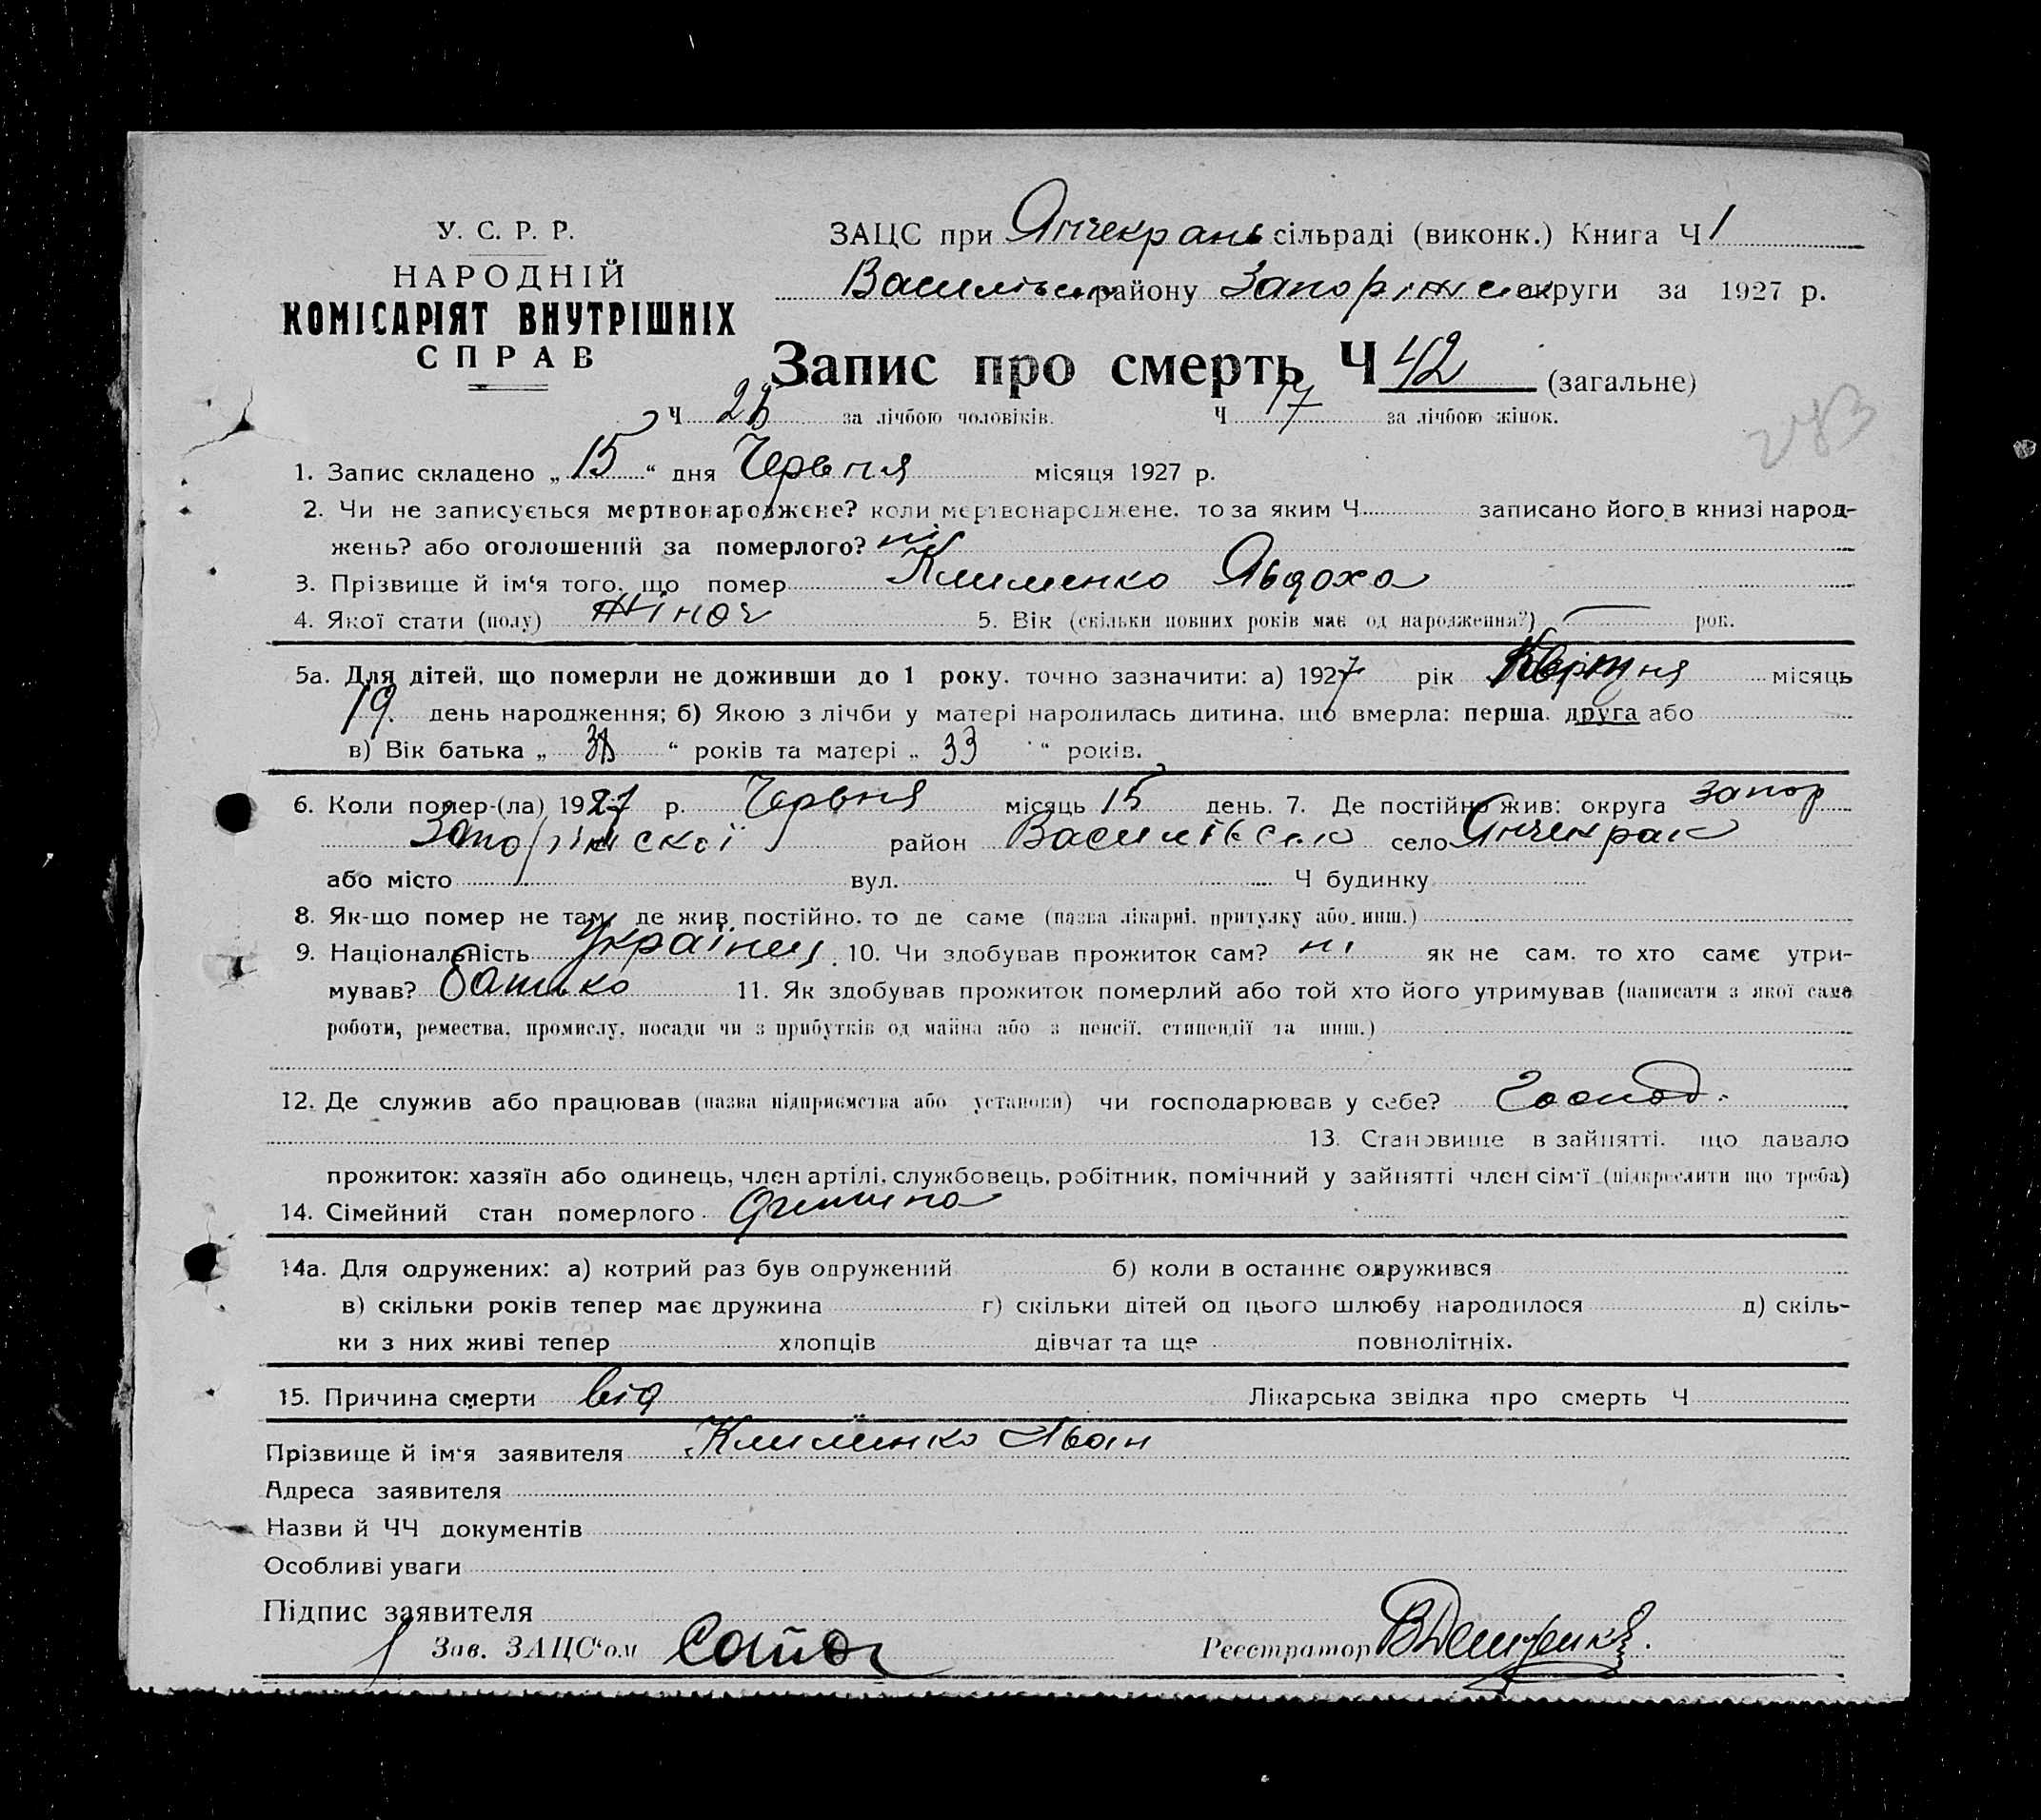 У. С. Р. Р.
НАРОДНІЙ
КОМІСАРІЯТ ВНУТРІШНІХ
СПРАВ
ЗАЦС при Янчекрань сільраді (виконк.) Книга Ч 1
Василівськ району Запоріжськ округи за 1927 р.
Запис про смерть Ч 42 (загальне)
Ч 25 за лічбою чоловіків. Ч 17 за лічбою жінок.
283
1. Запис складено „ 15 “ дня Червня місяця 1927 р.
2. Чи не записується мертвонароджене? коли мертвонароджене, то за яким Ч записано його в книзі народ-
жень? або оголошений за померлого? ні
3. Прізвище й ім‘я того, що помер Клименко Явдоха
4. Якої стати (полу) жіноч 5. Вік (скільки повних років має од народження?) — рок.
5а. Для дітей, що померли не доживши до 1 року, точно зазначити: а) 1927 рік Квітня місяць
19. день народження; б) Якою з лічби у матері народилась дитина, що вмерла: перша, друга або
в) Вік батька „ “ років та матері „ 33 “ років.
6. Коли помер-(ла) 1927 р. Червня місяць 15 день. 7. Де постійно жив: округа Запор
Запоріжської район Василівськ село Янчекрак
або місто вул. Ч будинку
8. Як-що помер не там, де жив постійно, то де саме (назва лікарні, притулку або. инш.)
9. Національність Україней. 10. Чи здобував прожиток сам? ні як не сам, то хто саме утри-
мував? батько 11. Як здобував прожиток померлий або той хто його утримував (написати з якої саме
роботи, ремества, промислу, посади чи з прибутків од майна або з пенсії, стипендії та инш.)
12. Де служив або працював (назва підприємства або установи) чи господарював у себе? Господ.
13. Становище в зайнятті, що давало
прожиток: хазяїн або одинець, член артілі, службовець, робітник, помічний у зайнятті член сім‘ї (підкреслити що треба)
14. Сімейний стан померлого дитина
14а. Для одружених: а) котрий раз був одружений б) коли в останнє одружився
в) скільки років тепер має дружина г) скільки дітей од цього шлюбу народилося д) скіль-
ки з них живі тепер хлопців дівчат та ще повнолітніх.
15. Причина смерти від Лікарська звідка про смерть Ч
Прізвище й ім‘я заявителя Клименко Іван
Адреса заявителя
Назви й ЧЧ документів
Особливі уваги
Підпис заявителя
Зав. ЗАЦС‘ом Реєстратор